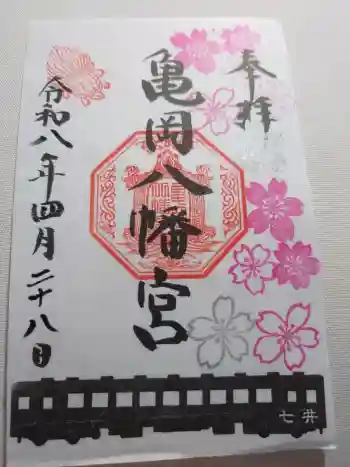 奉拝
亀岡八幡宮
令和八年四月二十八日
七井